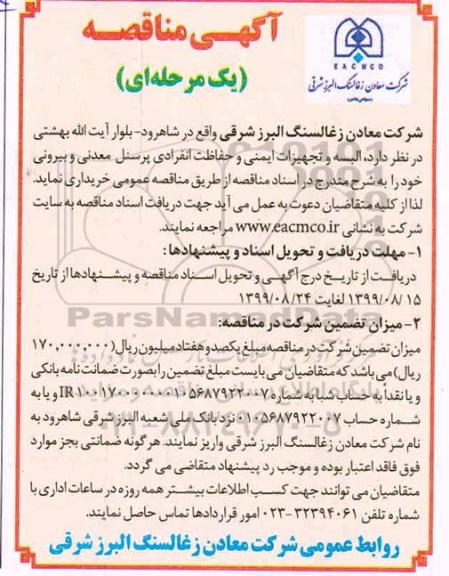 آگهـی مناقصـه
(یک مرحله‌ای)
EACMCO
شرکت معادن زغالسنگ البرز شرقی
شرکت معادن زغالسنگ البرز شرقی واقع در شاهرود- بلوار آیت الله بهشتی
در نظر دارد، البسه و تجهیزات ایمنی و حفاظت انفرادی پرسنل معدنی و بیرونی
خود را به شرح مندرج در اسناد مناقصه از طریق مناقصه عمومی خریداری نماید.
لذا از کلیه متقاضیان دعوت به عمل می آید جهت دریافت اسناد مناقصه به سایت
شرکت به نشانی www.eacmco.ir مراجعه نمایند.
۱- مهلت دریافت و تحویل اسناد و پیشنهادها:
دریافت از تاریخ درج آگهـی و تحویل اسناد مناقصه و پیشنهادها از تاریخ
۱۳۹۹/۰۸/۱۵ لغایت ۱۳۹۹/۰۸/۲۴
۲- میزان تضمین شرکت در مناقصه:
میزان تضمین شرکت در مناقصه مبلغ یکصد و هفتاد میلیون ریال (۱۷۰,۰۰۰,۰۰۰
ریال) می باشد که متقاضیان می بایست مبلغ تضمین را بصورت ضمانت نامه بانکی
و یا نقداً به حساب شبا به شماره و یا به
شماره حساب ۰۱۰۵۶۸۷۹۲۲۰۰۷ نزد بانک ملی شعبه البرز شرقی شاهرود به
نام شرکت معادن زغالسنگ البرز شرقی واریز نمایند. هرگونه ضمانتی بجز موارد
فوق فاقد اعتبار بوده و موجب رد پیشنهاد متقاضی می گردد.
متقاضیان می توانند جهت کسب اطلاعات بیشتر همه روزه در ساعات اداری با
شماره تلفن ۳۲۳۹۴۰۶۱-۰۲۳ امور قراردادها تماس حاصل نمایند.
روابط عمومی شرکت معادن زغالسنگ البرز شرقی
ParsNamadData
۰۲۱-۸۸۳۴۹۶۷۰-۵